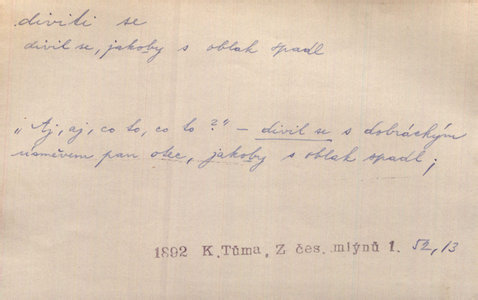 diviti se
divil se, jakoby s oblak spadl
„Aj, aj, co to, co to?" – divil se s dobráckým
úsměvem pan otec, jakoby s oblak spadl;
1892 K. Tůma, Z čes. mlýnů 1. 52, 13